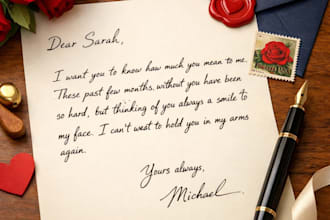 Dear Sarah,
I want you to know how much you mean to me.
These past few months, without you have been
so hard, but thinking of you always a smile to
my face. I can't west to hold you in my arms
again.
Yours always,
Michael